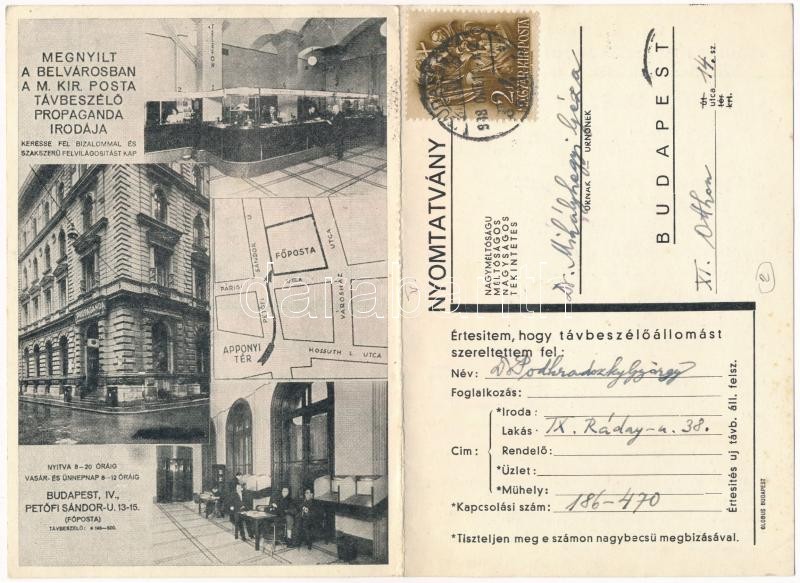 MEGNYILT
A BELVÁROSBAN
A M. KIR. POSTA
TÁVBESZÉLŐ
PROPAGANDA
IRODÁJA
KERESSE FEL BIZALOMMAL ÉS
SZAKSZERŰ FELVILÁGOSITÁST KAP
PROPAGANDA
FŐPOSTA
PÁRISI U.
PETŐFI SÁNDOR U.
UTCA
VÁROSHÁZ UTCA
APPONYI
TÉR
KOSSUTH L. UTCA
NYITVA 8–20 ÓRÁIG
VASÁR- ÉS ÜNNEPNAP 8–12 ÓRÁIG
BUDAPEST, IV.,
PETŐFI SÁNDOR-U. 13-15.
(FŐPOSTA)
2
MAGYAR KIR. POSTA
NYOMTATVÁNY
NAGYMÉLTÓSÁGU
MÉLTÓSÁGOS
NAGYSÁGOS
TEKINTETES
Dr. Mihályhegyi Géza
URNAK URNŐNEK
BUDAPEST
XI. Otthon
út
utca 14. sz.
tér
krt.
Értesitem, hogy távbeszélőállomást
szereltettem fel:
Név: Dr Podhradszky György
Foglalkozás:
Cim:
*Iroda:
Lakás: IX. Ráday-u. 38.
Rendelő:
*Üzlet:
*Műhely:
*Kapcsolási szám: 186-470
*Tiszteljen meg e számon nagybecsü megbizásával.
Értesités uj távb. áll. felsz.
GLOBUS BUDAPEST
darabanth